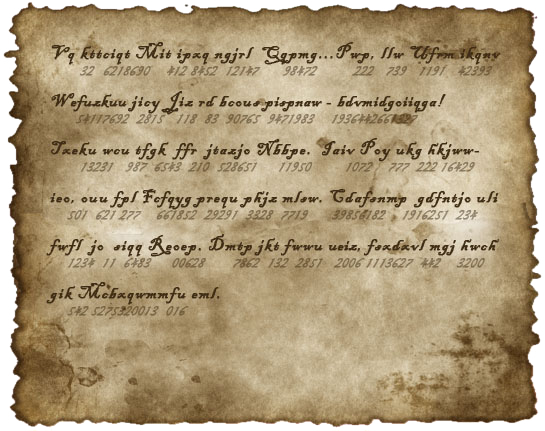 Vq kttciqt Mit ipxq ngjrl Qqpmg...Pwp, llw Ufrm ikqnv
32 6218690 412 8452 12147 98472 222 739 1191 42393
Wefuzkuu jicy Jiz rd bcous pispnaw - bdvmidgoiiqga!
54117692 2815 118 83 90765 9471983
Txeku wou tfgk ffr jtaxjo Nbbpe. Iaiv Poy ukg hkjww-
13231 987 6543 210 528651 11950 1072 777 222 16429
ieo, ouu fpl Fcfqyg prequ phjz mlsw. Cdafsnmp gdfntjo uli
501 621 277 661852 29291 3328 7719 39856182 1916251 234
fwfl jo siqq Rgoep. Dmtp jkt fwwu ueiz, fsxdxvl mgj hwch
1234 11 6483 00628 7862 132 2851 2006 1113627 442 3200
gik Mcbxqwmmfu eml.
542 5275320013 016